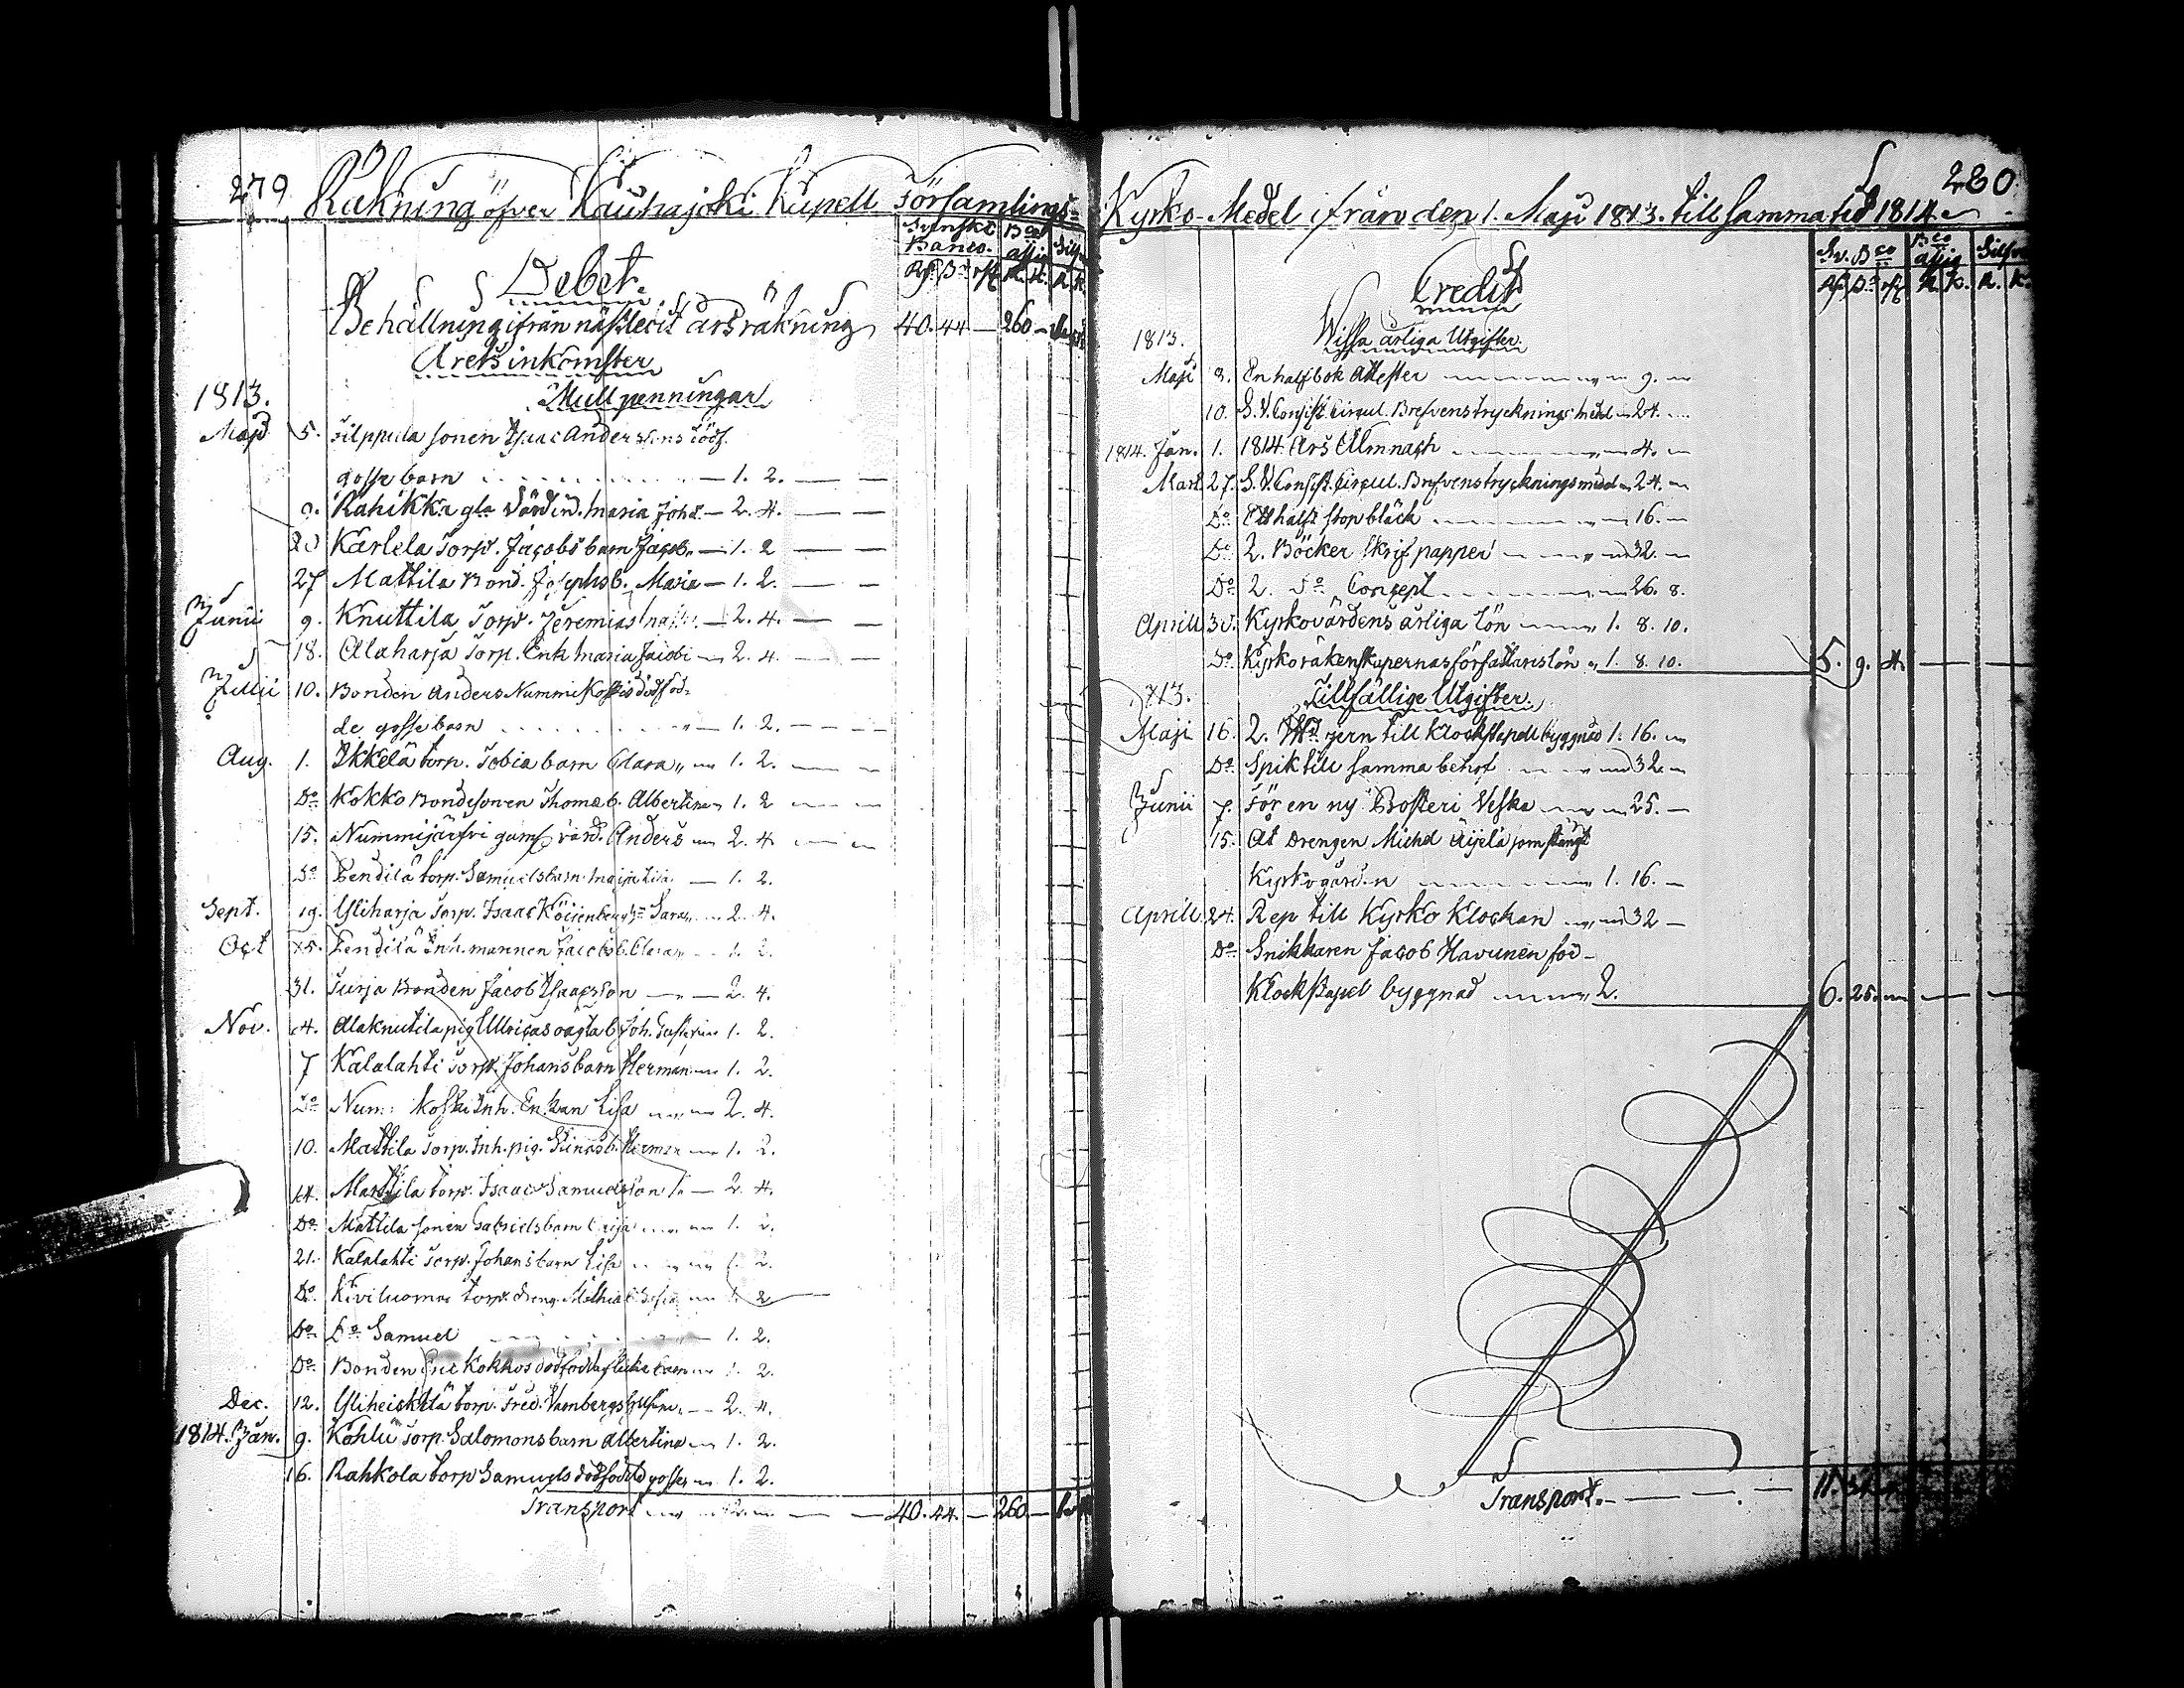 279 Räkning öfver Kauhajoki Kapell Församlings-
Svenske Banco. Bco assig Silf
Rf. B. rst R. K. R. K.
Debet.
Behållning ifrån nästledit års räkning 40. 44 — 260 —
Årets inkomster
1813. Mullpenningar
Maji 5. Filppula sonen Isaac Anderssons död f.
gosse barn — 1. 2. — —
9. Rahikka gla Värdin. Maria Joh. — 2. 4. — —
20 Karlela Torp. Jacobs barn Jacob — 1. 2 — —
27 Mattila Bond. Josephs b. Maria — 1. 2. — —
Junii 9. Knuttila Torp. Jeremias — 2. 4. — —
18. Alaharja Torp. Enk Maria Jacobi — 2. 4. — —
Julii 10. Bonden Anders Nummikoskis dödföd-
de gosse barn — 1. 2. — —
Aug. 1. Ikkelä torp. Tobia barn Clara — 1. 2. — —
Do Kokko Bondesonen Thomas b. Albertina 1. 2 — —
15. Nummijärfvi gaml värd. Anders — 2. 4. — —
Do Pendilä torp. Samuels barn Maja Lisa — 1. 2.
Sept. 19. Yliharja Torp. Isaac Köijenbergs Sara — 2. 4.
Oct 25. Pendilä Inh. mannen Jacobs b. Clara 1. 2.
31. Turja Bonden Jacob Isaacsson — 2. 4.
Nov. 4. Alaknutila pig Ullricas oägta b. Joh. 1. 2.
7 Kalalahti Torp. Johans barn Herman 1. 2.
Do Num: koski Inh. Enkan Lisa 2. 4.
10. Mattila Torp. Inh. pig. b. Herman 1. 2.
14. Mattila torp. Isaac Samuelsson — 2. 4.
Do Mattila sonen Gabriels barn Caija 1. 2.
21. Kalalahti Torp. Johans barn Lisa 1. 2.
Do Kiviluoma torp. dreng. Mathias b. 1. 2
Do Do Samuel 1. 2.
Do Bonden Eric Kokkos dödfödda flicke barn 1. 2.
Dec. 12. Yliheickilä torp. Fred. hustru 2. 4.
1814. Jan. 9. Kohlu Torp. Salomons barn Albertina 1. 2.
16. Rahkola torp Samuels dödfödd gosse 1. 2.
Transport — 40. 44. — 260. —
Kyrko-Medel ifrån den 1. Maji 1813. till samma tid 1814. 280.
Sv. Bco Bco assig Silfv
Rf. B. rst R. K. R. K.
Credit
1813. Wissa årliga Utgifter.
Maji 8. En half bok Attester 9. —
10. S. V. Consist. Circul. Brefvens trycknings medel 24. —
1814. Jan. 1. 1814 års Almnach 4. —
Mart 27. S. V. Consist. Circul. Brefvens tryckningsmedel 24. —
Do Ett halft stop bläck 16. —
Do 2. Böcker skrif papper 32. —
Do 2. Do Concept 26. 8.
Aprill 30. Kyrkovärdens årliga Lön 1. 8. 10.
Do Kyrkoräkenskapernas författares lön 1. 8. 10. 5. 9. 4. — —
1813. Tillfällige Utgifter.
Maji 16. 2. jern till Klockstapell byggnad 1. 16. —
Do Spik till samma behof 32. —
Junii 7. För en ny Posteri Veska 25. —
15. At Drengen Michel Äijelä som stängt
Kyrkogården 1. 16. —
Aprill 24. Rep till Kyrko Klockan 32 —
Do Snikkaren Jacob Havunen för
Klockstapel byggnad 2. 6. 25. — — —
Transport. — — — 11.